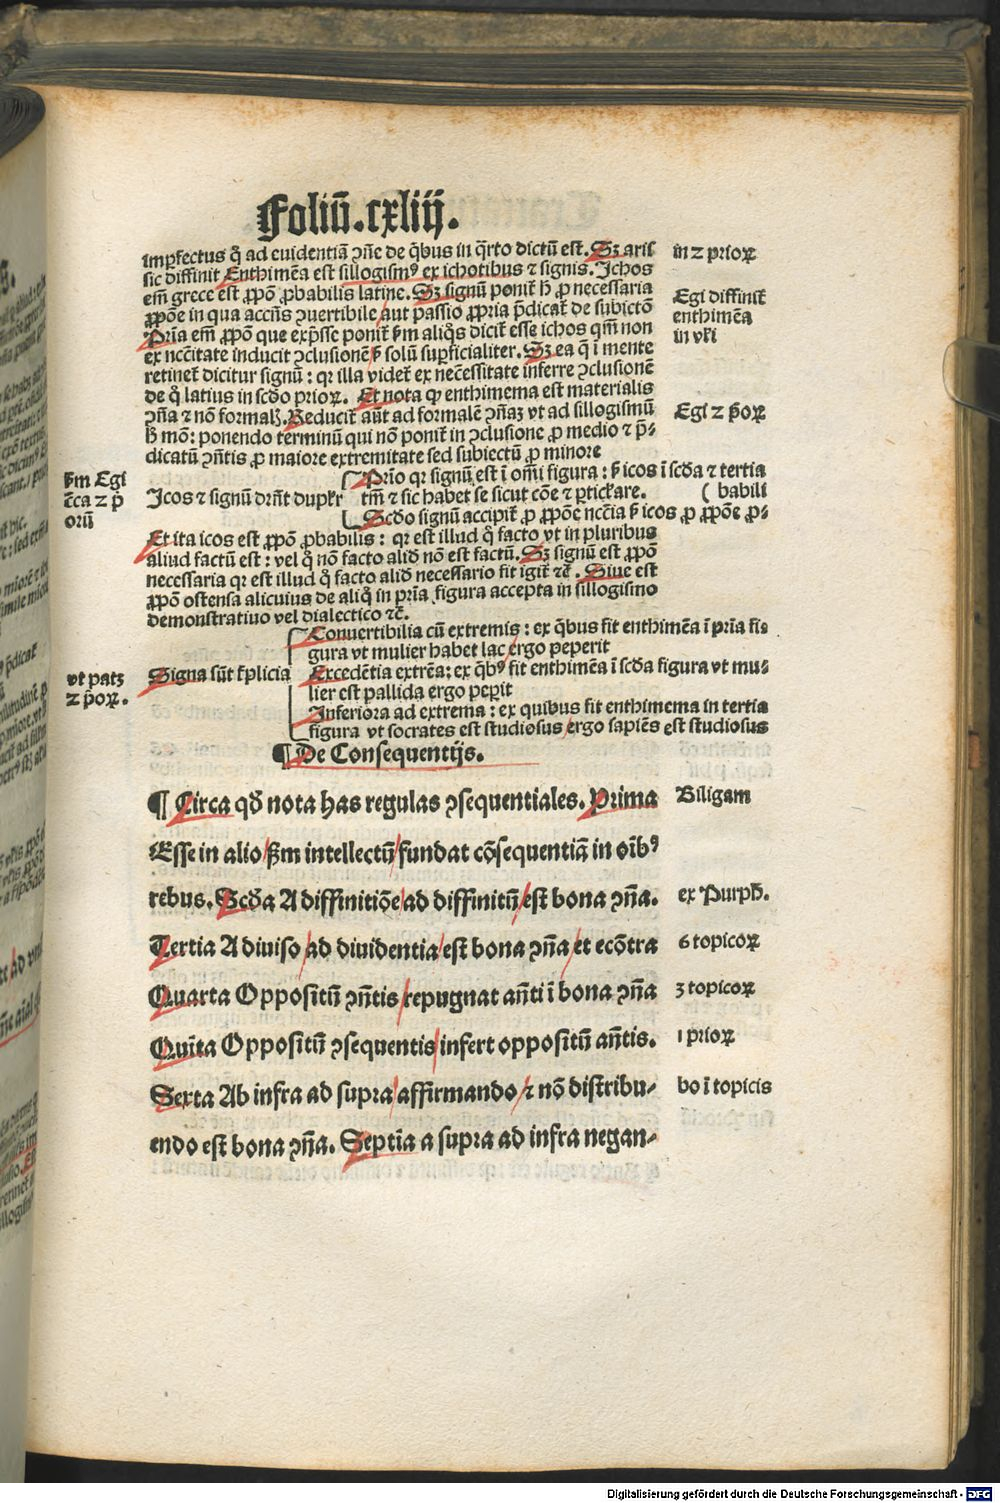 Foliū.cxliij.
imp̄fectus q̄ ad euidentiā ꝯn̄e de q̄bus in q̄rto dictū est. Sꝫ aris
sic diffinit Enthimēa est sillogismꝰ ex ichotibus ⁊ signis. Ichos
em̄ grece est ꝓpō ꝓbabilis latine. Sꝫ signū ponit̄ h̄ ꝓ necessaria
ꝓpōe in qua accn̄s ꝯuertibile aut passio ꝓpria p̄dicat̄ de subictō
Pria em̄ ꝓpō que exp̄sse ponit̄ ẜm aliq̄s dicit̄ esse ichos qm̄ non
ex nec̄itate inducit ꝯclusionē ẜ solū suꝑficialiter. Sꝫ ea q̄ ī mente
retinet̄ dicitur signū : qꝛ illa videt̄ ex nec̄essitate inferre ꝯclusionē
de q̄ latius in scd̄o prioꝝ. Et nota ꝙ enthimema est materialis
ꝯn̄a ⁊ nō formalꝫ. Reducit̄ aūt ad formalē ꝯn̄aꝫ vt ad sillogismū
h̄ mō: ponendo terminū qui non ponit̄ in ꝯclusione ꝓ medio ⁊ p̄-
dicatū ꝯn̄tis ꝓ maiore extremitate sed subiectū ꝓ minore
Prīo qꝛ signū est ī omī figura : ẜ icos ī scd̄a ⁊ tertia
Icos ⁊ signū drn̄t duplr̄ tm̄ ⁊ sic habet se sicut cōe ⁊ ꝑtic̄lare. ( babili
Scd̄o signū accipit̄ ꝓ ꝓpōe nc̄cia ẜ icos ꝓ ꝓpōe ꝓ-
Et ita icos est ꝓpō ꝓbabilis : qꝛ est illud q̄ facto vt in pluribus
aliud factū est : vel q̄ nō facto alid̄ nō est factū. Sꝫ signū est ꝓpō
necessaria qꝛ est illud q̄ facto alid̄ necessario fit igit̄ ⁊c̄. Siue est
ꝓpō ostensa alicuius de aliq̄ in pria figura accepta in sillogismo
demonstratiuo vel dialectico ⁊c̄.
Conuertibilia cū extremis : ex q̄bus fit enthimēa ī pria fi-
gura vt mulier habet lac ergo peperit
Signa sūt t̄plicia Excedētia extrēa: ex q̄bꝰ fit enthimēa ī scd̄a figura vt mu-
lier est pallida ergo peꝑit
Inferiora ad extrema : ex quibus fit enthimema in tertia
figura vt socrates est studiosus ergo sapiēs est studiosus
¶ De Consequentijs.
¶ Circa qd̄ nota has regulas ꝯsequentiales. Prima
Esse in alio ẜm intellectū fundat cōsequentiā in oībꝰ
rebus. Scd̄a A diffinitiōe ad diffinitū est bona ꝯn̄a.
Tertia A diuiso ad diuidentia est bona ꝯn̄a et ecōtra
Quarta Oppositū ꝯn̄tis repugnat an̄ti ī bona ꝯn̄a
Quīta Oppositū ꝯsequentis infert oppositū an̄tis.
Sexta Ab infra ad supra affirmando ⁊ nō distribu-
endo est bona ꝯn̄a. Septīa a supra ad infra negan-
in 2 prioꝝ
Egi diffinit̄
enthimēa
in vl̄i
Egi 2 p̄oꝝ
ẜm Egi
oriū
vt patꝫ
2 p̄oꝝ.
Biligam
ex Purph̄.
6 topicoꝝ
3 topicoꝝ
1 prioꝝ
bo ī topicis
Digitalisierung gefördert durch die Deutsche Forschungsgemeinschaft - DFG